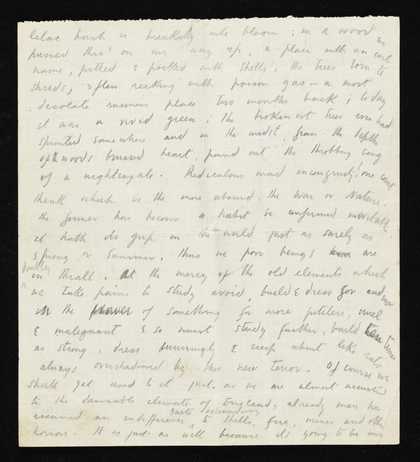 lilac bush is breaking into bloom; in a wood
passed thro' on our way up, a place with an evil
name, pitted & pocked with shells, the trees torn to
shreds, often reeking with poison gas – a most
desolate ruinous place two months back; today
it was a vivid green; the broken out trees even had
sprouted somewhere and in the midst, from the depths
of the wood's bruised heart, poured out the throbbing song
of a nightingale. Ridiculous mad incongruity! one can't
think which is the more absurd, the War or Nature.
the former has become a habit so confirmed inevitable
it hath its grip on the world just as surely as
spring or Summer. Thus we poor beings are
doubly
in thrall. At the mercy of the old elements which
we take pains to study avoid, build & dress for and now
in the power of something far more pitiless, cruel
& malignant & so must study further, build ten times
as strong, dress cunningly & creep about like rats
always overshadowed by this new terror. Of course we
shall get used to it just as we are almost accustomed
to the damnable climate of England, already man has
assumed an indifference, quite astounding to shells, fire, mines and other
horrors. It is just as well because it's going to be our